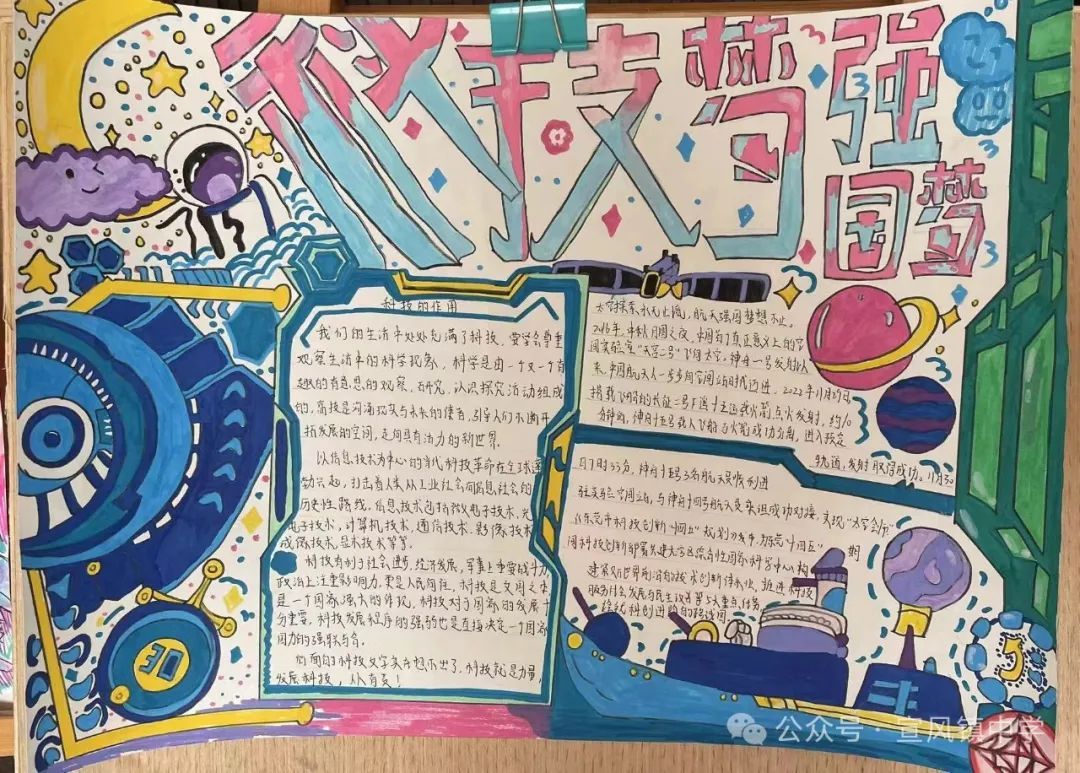 科技梦 强国梦
科技的作用
我们的生活中处处充满了科技,要学会尊重
观察生活中的科学现象,科学是由一个又一个有
趣的有意思的观察、研究、认识探究活动组成
的,高技是沟通现实与未来的使者,引导人们不断开
拓发展的空间,走向具有活力的新世界.
以信息技术为中心的当代科技革命在全球蓬
勃兴起,引击着人类从工业社会向信息社会的
历史性路线,信息技术包括微电子技术,光
电子技术,计算机技术,通信技术.影像技术
成像技术.显示技术等等.
科技有利于社会进步,经济发展,军事上重要战斗力
政治上注重影响力,更是人民向往,科技是文明之
是一个国家强大的作现,科技对于国家的发展十
分重要.科技发展程序的强弱也是直接决定一个国家
国力的强弱与否.
后面的科技文字实在想不出了.科技就是力量,
发展科技,人人有责!
太空探索永无止境,航天强国梦想不止.
2016年,中秋月圆之夜,中国首个真正意义上的空
间实验室"天宫二号"飞向太空,神舟一号发射以
来,中国航天人一步步向空间站时代迈进,2022年11月29日,
搭载飞船的长征二号F遥十五运载火箭点火发射,约10
分钟后,神舟十五号载人飞船与火箭成功分离,进入预定
轨道,发射取得成功.11月30
日7时33分,神舟十五号3名航天员顺利进
驻实验空间站,与神舟十四号航天员乘组成功对接,实现"太空会师"
《东莞市科技创新"十四五"规划》发布,为东莞"十四五" 期
间科技创新部署先建大湾区综合性国家科学中心
构建
服务社会发展与民生改善等5大重点任务,
绘就科创进阶的路线图.
3D
公众号 · 宣风镇中学